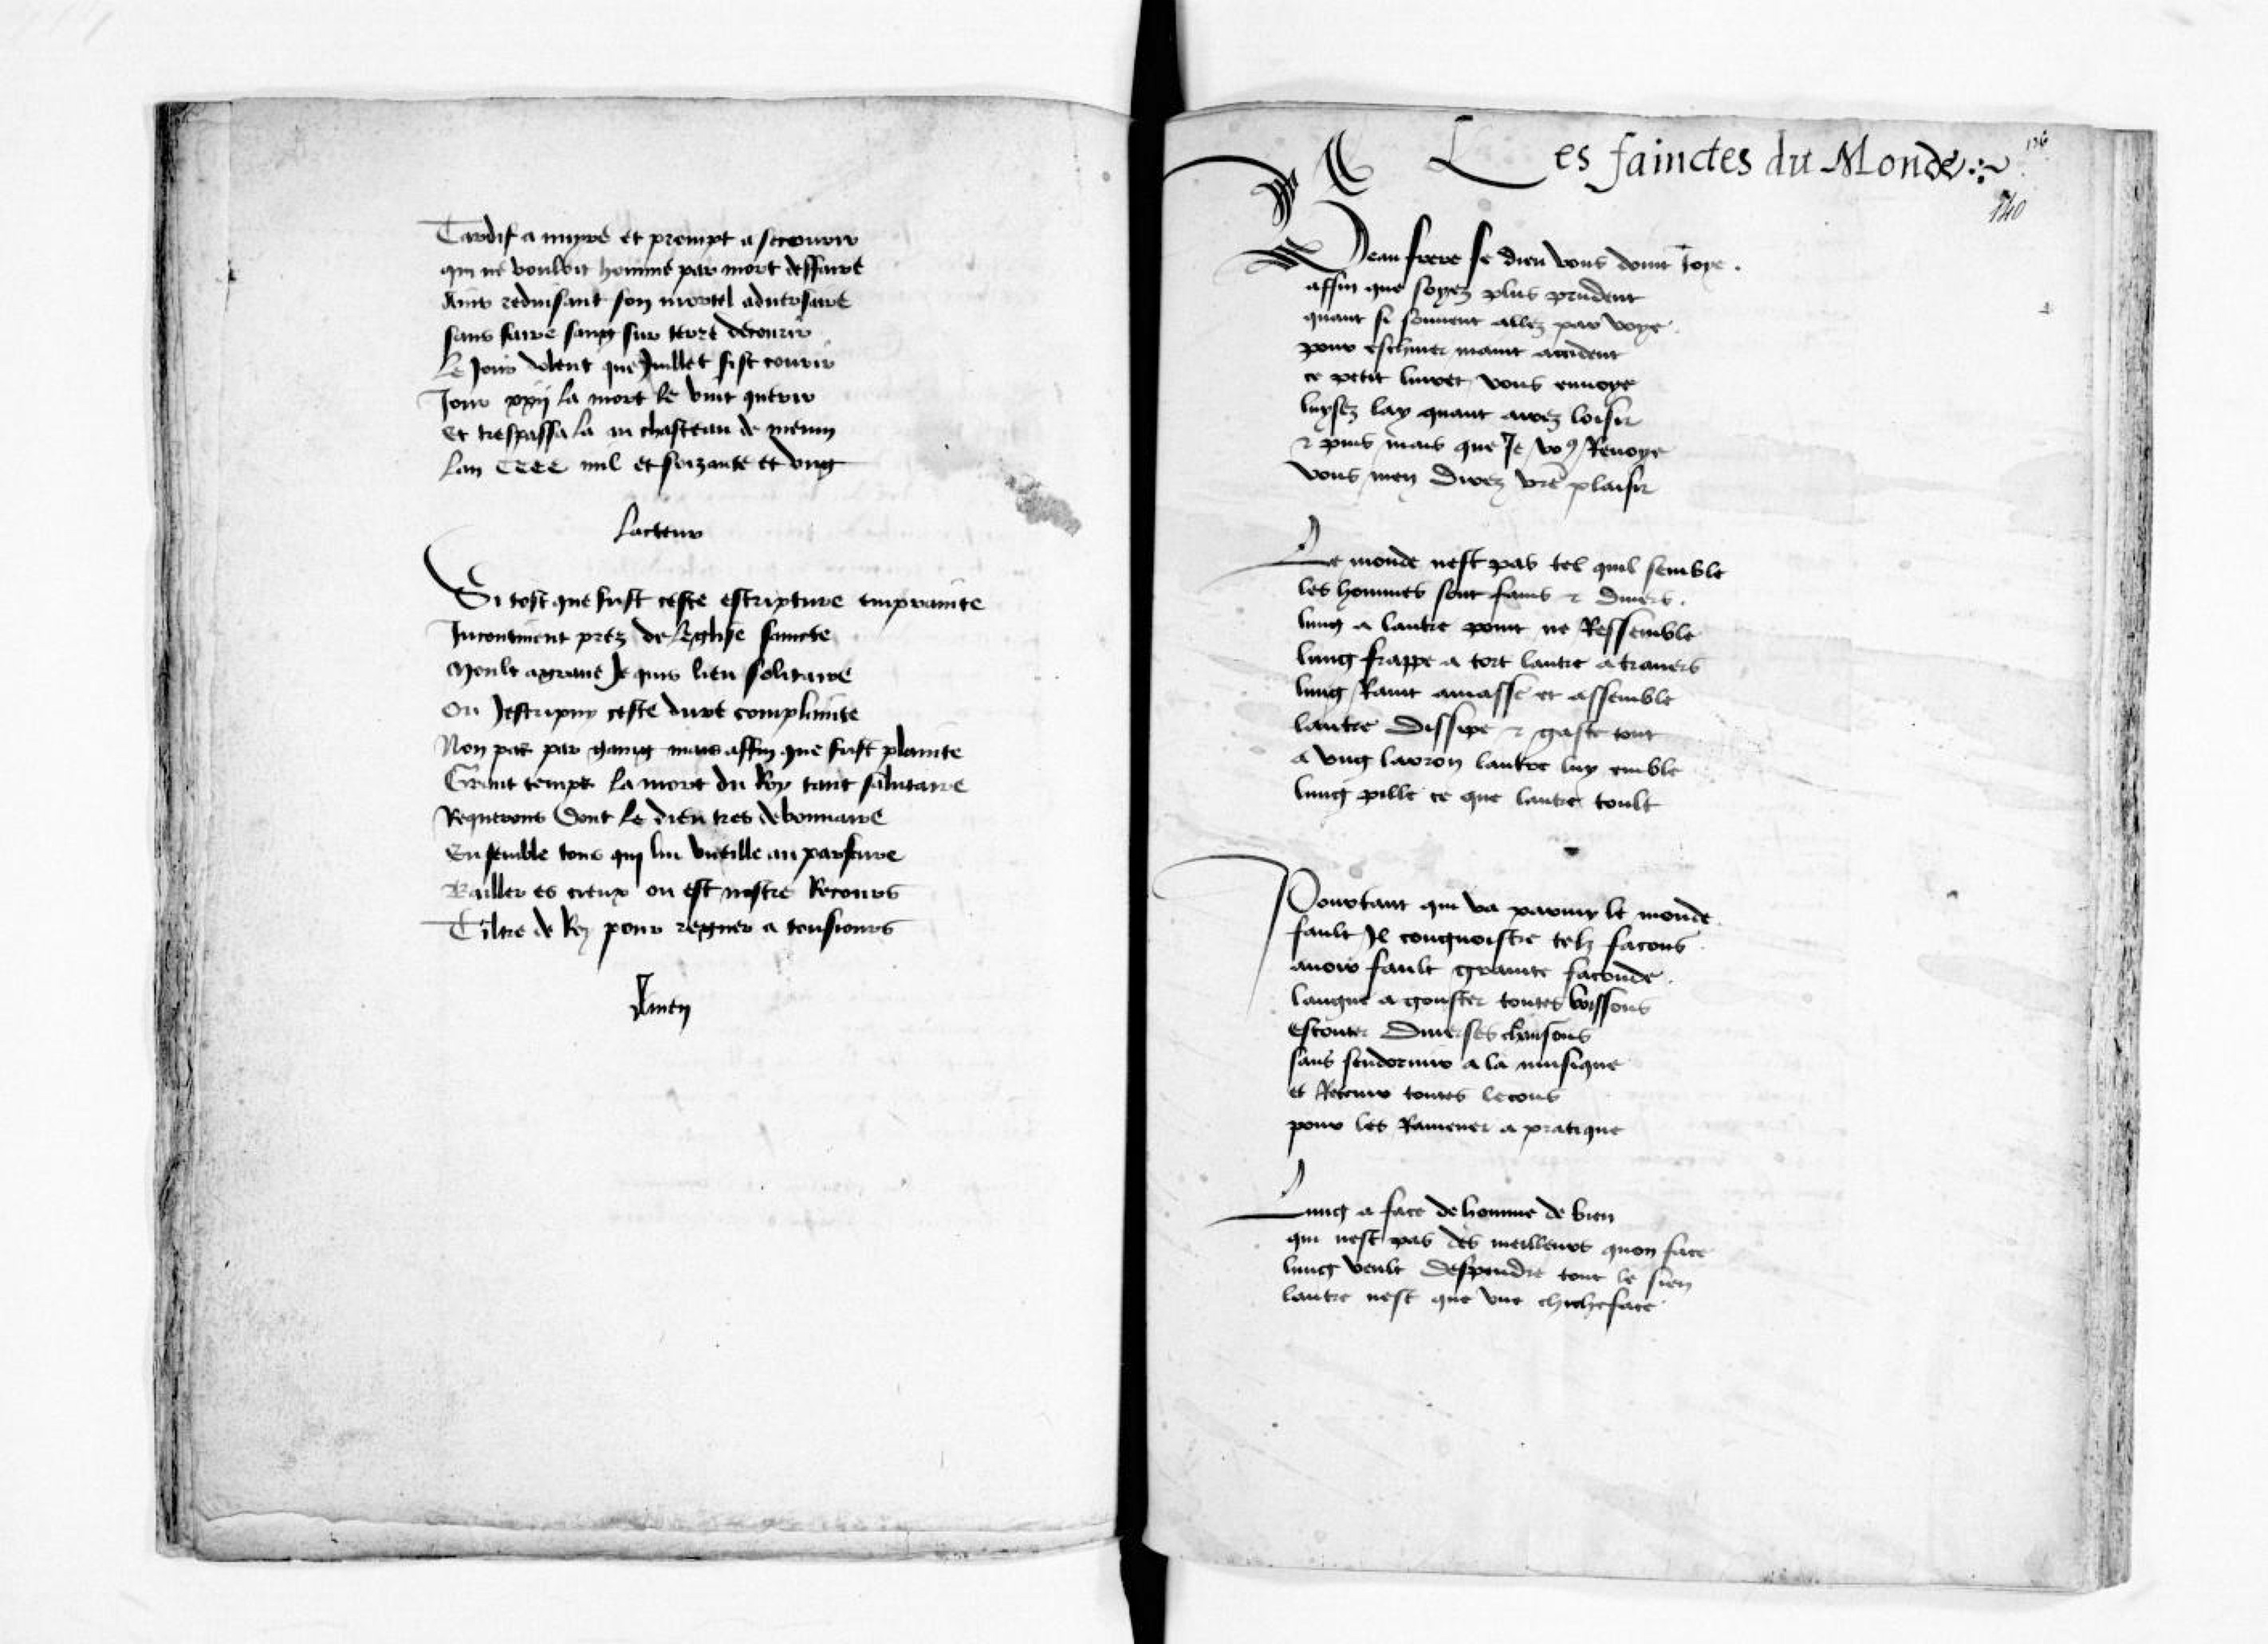 Tardif a nuyre et prompt a secourir
qui ne vouloit homme par mort deffaire
Ains reduisant son mortel adversaire
sans faire sang sur terre decourir
Le jour dolent que Juillet fist courir
Jour xxij la mort le vint querir
Et trespassa la au chasteau de meun
Lan CCCC mil et soizante et ung
Lacteur
Si tost que fust ceste escripture emprainte
Incontinent prez de leglise saincte
Moult agrave Je quis lieu solitaire
Ou Jescripuy ceste dure complainte
Non pas par gaing mais affin que fust plainte
Grant temps la mort du Roy tant salutaire
Requerons dont le dieu tres debonnaire
Ensemble tous qui lui vueille au parfaire
Bailler es cieux ou est nostre Recours
Tiltre de Roy pour regner a tousiours
Amen
Les fainctes du Monde
136
140
Beau frere se dieu vous doint Joye.
affin que soyez plus prudent
quant si souvent allez par voye.
pour eschiver maint accident
ce petit livret vous envoye
luysez lay quant avez loisir
& puis mais que Je vo9 Revoye
vous men direz vre plaisir
Le monde nest pas tel quil semble
les hommes sont fains & divers.
lung a lautre point ne Ressemble
lung frappe a tort lautre a travers
lung Ravit amasse et assemble
lautre dissipe & gaste tout
a ung larron lautre luy emble
lung pille ce que lautre toult
Pourtant qui va parmy le monde.
fault Il congnoistre telz facons.
avoir fault grante faconde.
langue a gouster toutes boissons
escouter diverses chansons
sans sendormir a la musique
et Retenir toutes lecons
pour les Ramener a pratique
Lung a face de homme de bien
qui nest pas des meilleurs quon face
lung veult despendre tout le sien
lautre nest que une chicheface